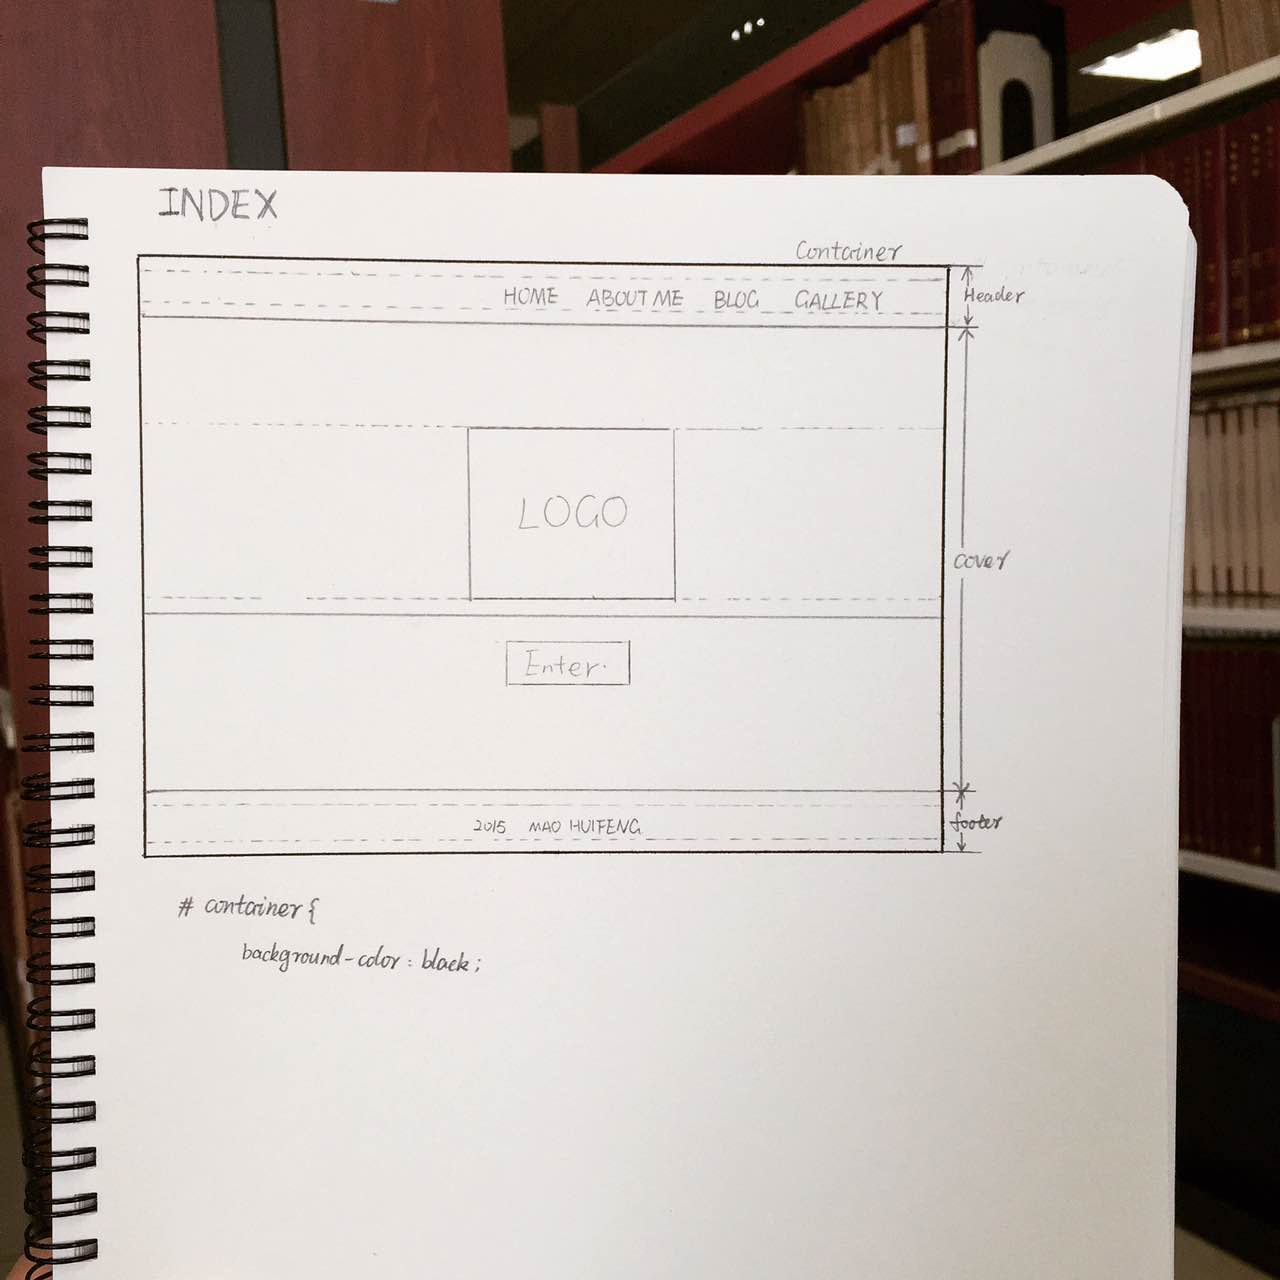 INDEX
Container
HOME ABOUT ME BLOG GALLERY
Header
LOGO
cover
Enter.
2015 MAO HUIFENG
footer
# container {
background-color: black;